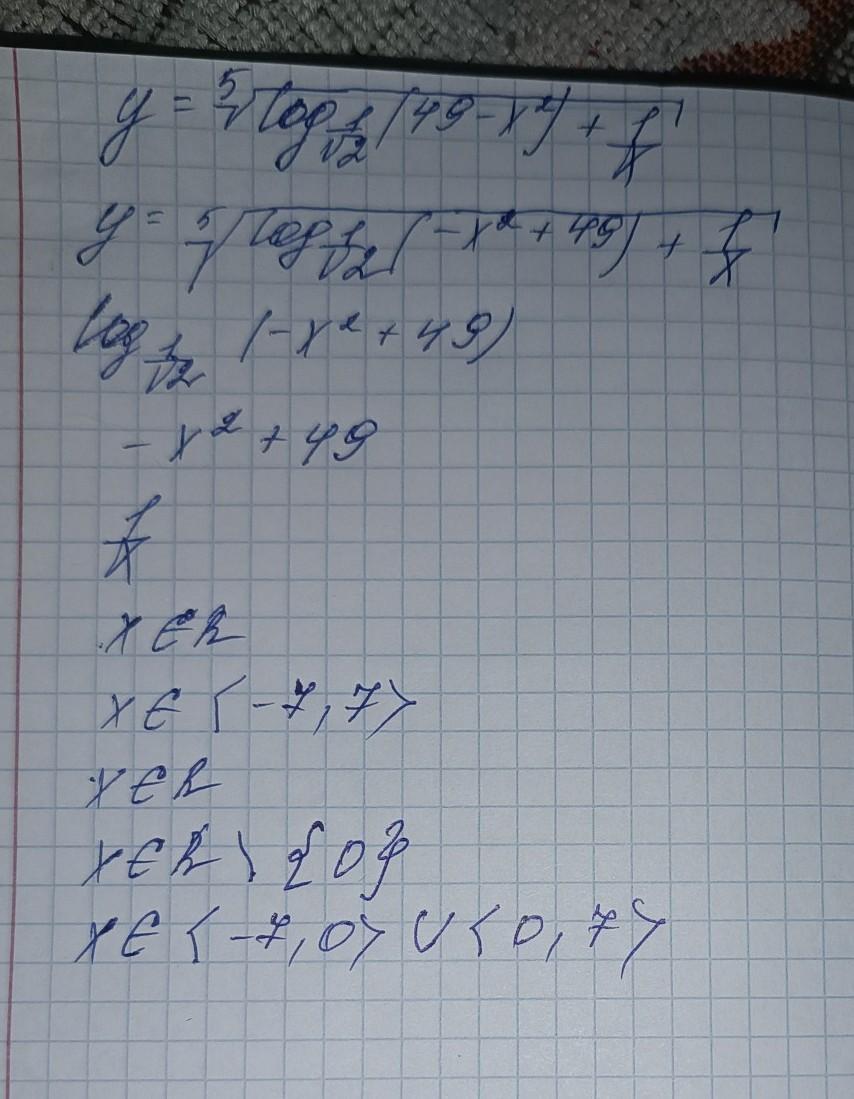 y = ⁵√(log_{1/√2}(49 - x²) + 1/x)
y = ⁵√(log_{1/√2}(-x² + 49) + 1/x)
log_{1/√2} (-x² + 49)
- x² + 49
1/x
x ∈ R
x ∈ ⟨-7, 7⟩
x ∈ R
x ∈ R \ {0}
x ∈ ⟨-7, 0⟩ ∪ ⟨0, 7⟩